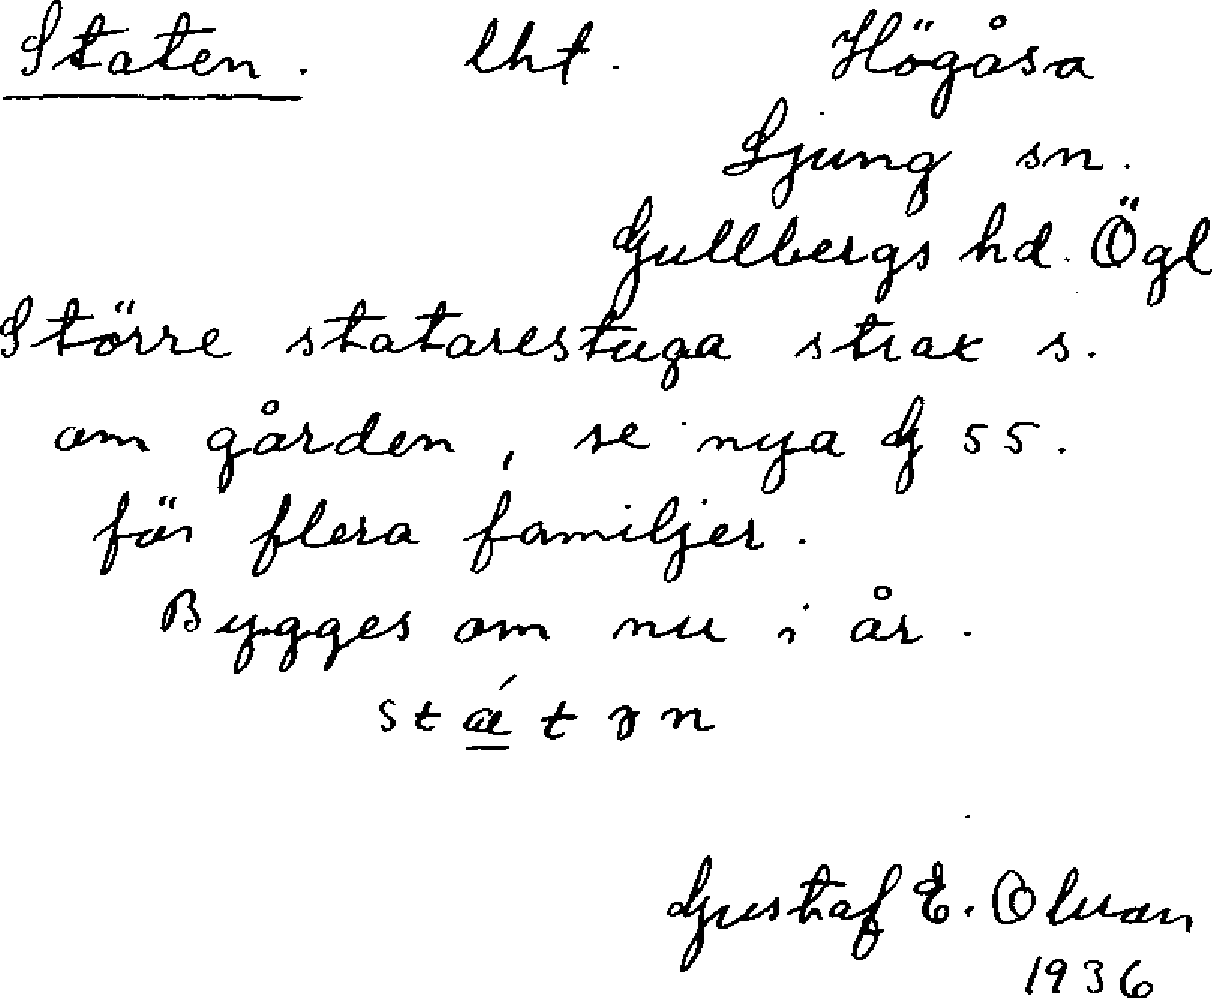 Staten. lht. Högåsa
Ljung sn.
Gullbergs hd. Ögl
Större statarestuga strax s.
om gården, se nya G 55.
för flera familjer.
Bygges om nu i år.
Gustaf E.
1936